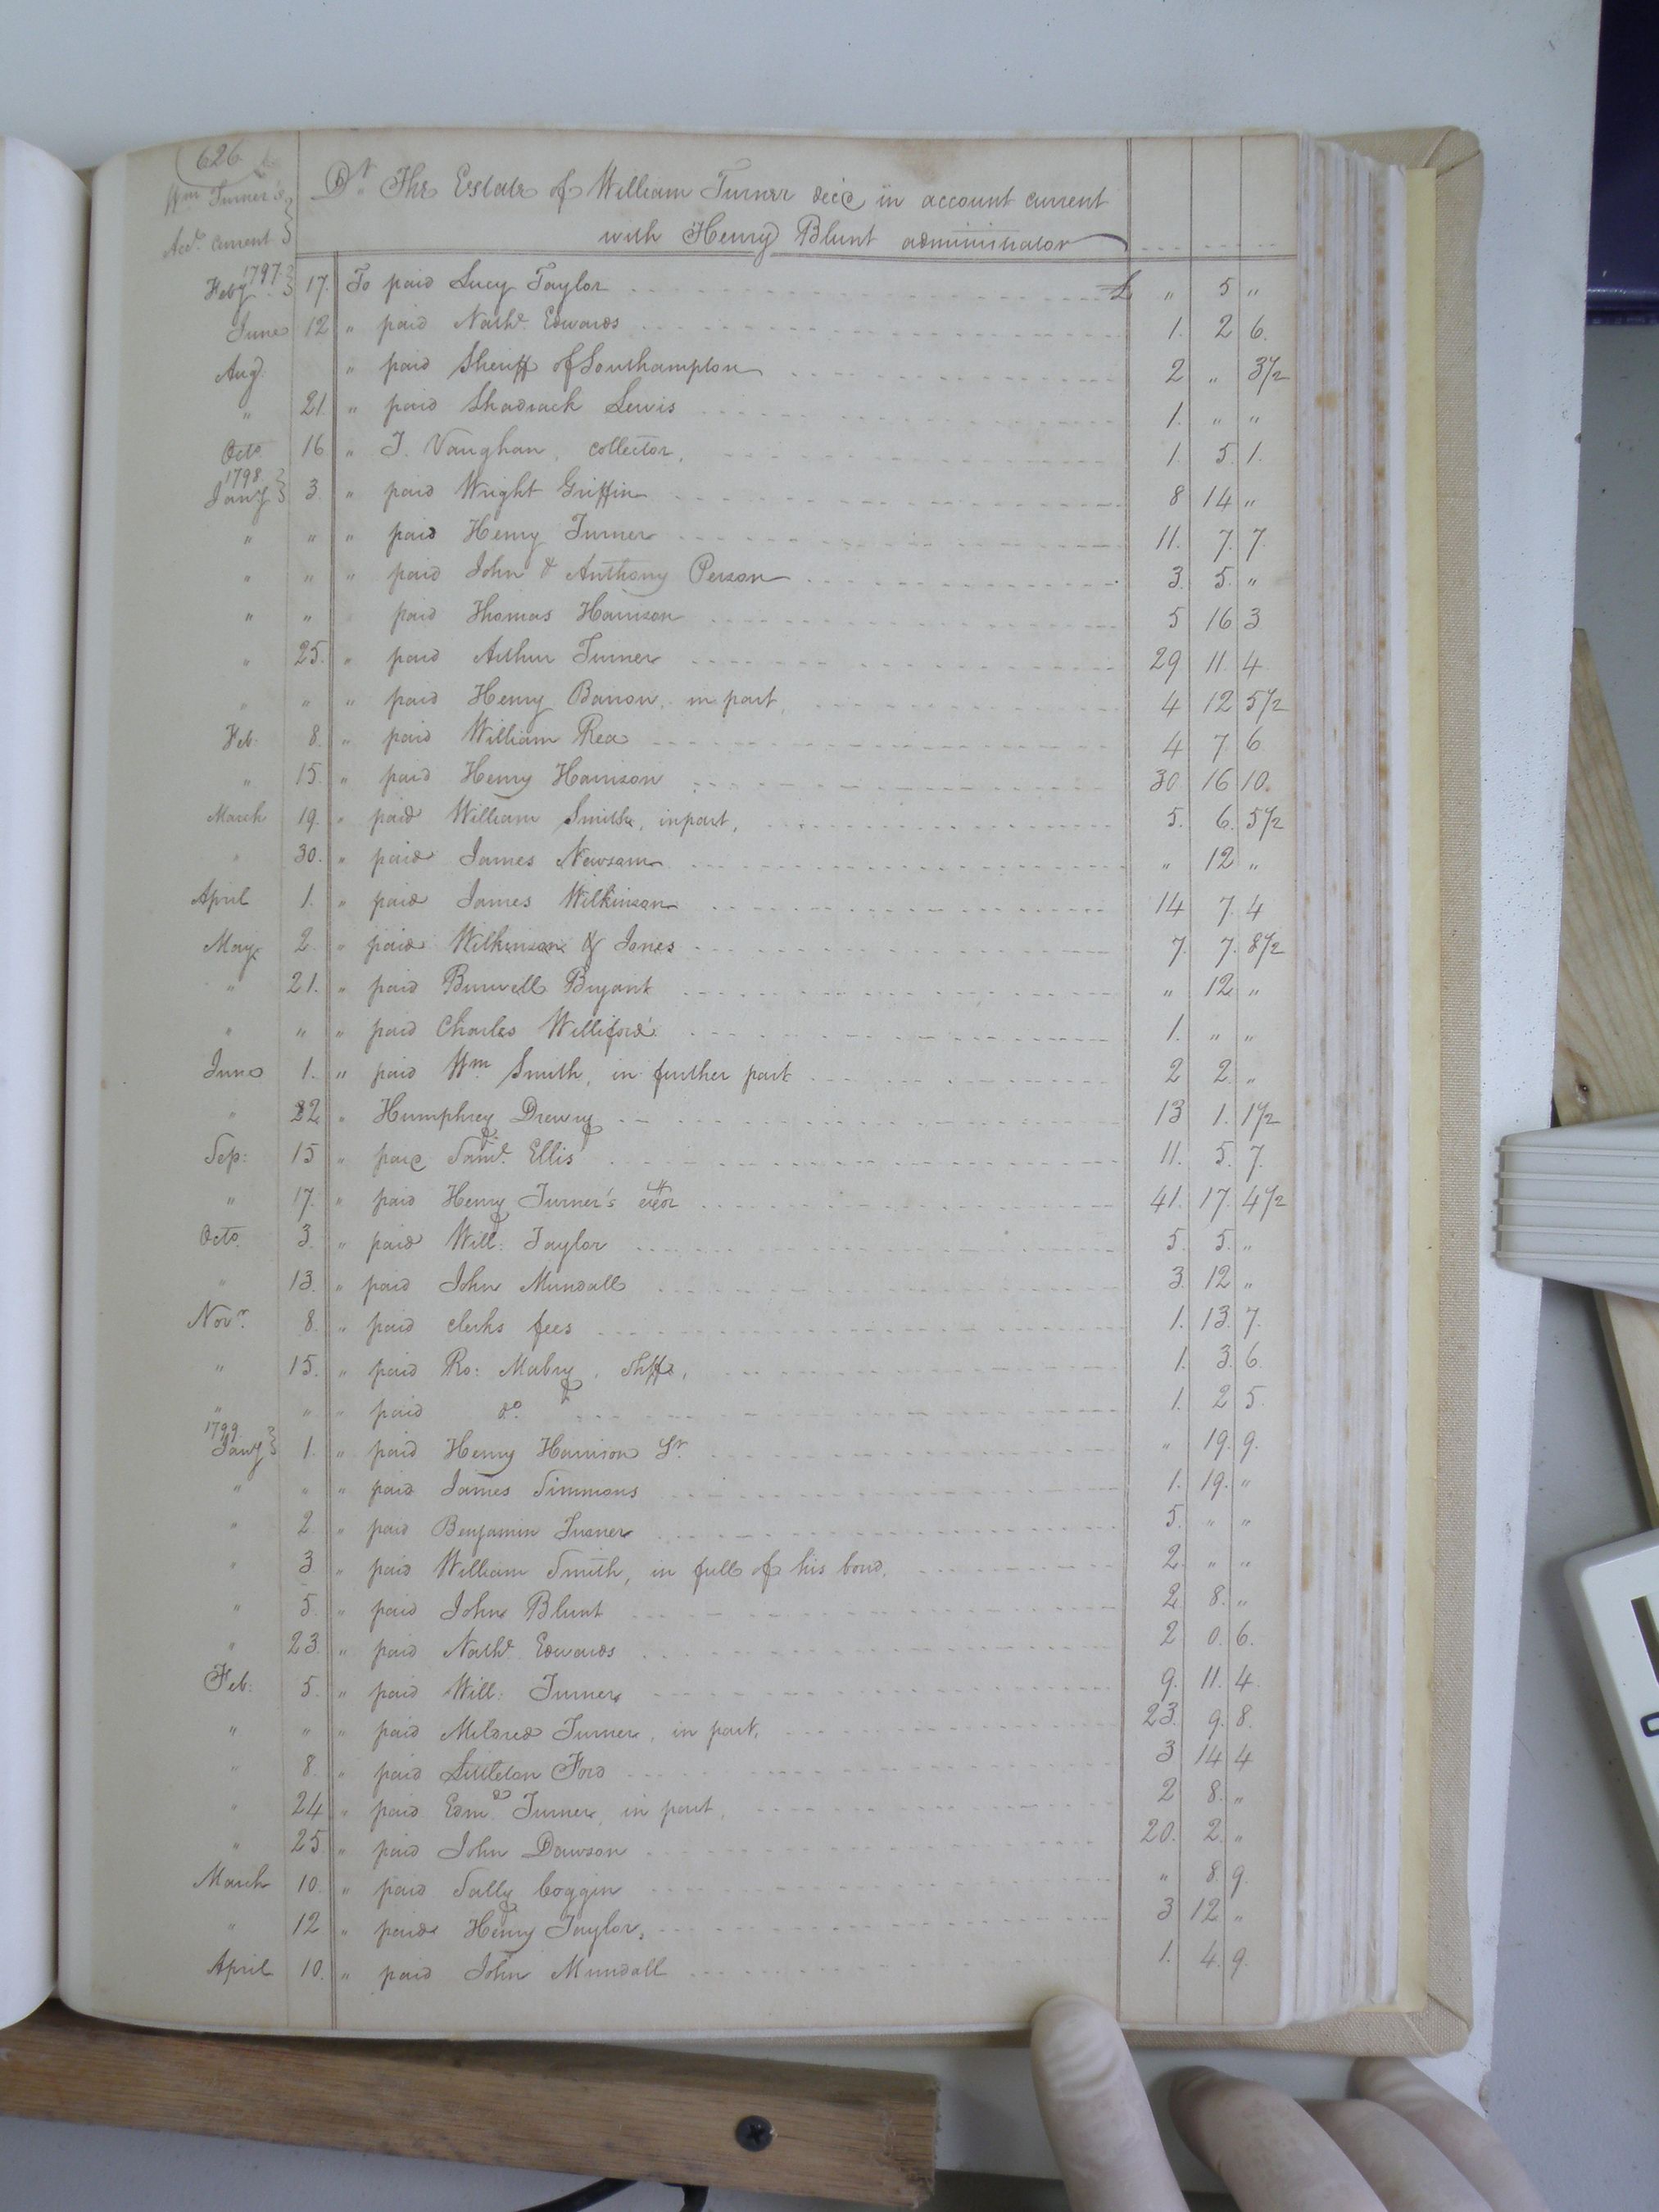 626
Wm Turner's
Acct. Current
Dr. The Estate of William Turner dec'd in account current
with Henry Blunt administrator
1797
Feby 17. To paid Lucy Taylor £ " 5 "
June 12 " paid Nathl. Edwards 1. 2 6.
Aug. " paid Sheriff of Southampton 2 " 3 1/2
" 21 " paid Shadrack Lewis 1. " "
Octo 16 " J. Vaughan, collector, 1. 5. 1.
1798
Jany 3 " paid Wright Griffin 8 14 "
" " " paid Henry Turner 11. 7. 7.
" " " paid John & Anthony Person 3. 5. "
" " paid Thomas Harrison 5 16 3
" 25. " paid Arthur Turner 29 11. 4
" " " paid Henry Barrow, in part, 4 12 5 1/2
Feb. 8. " paid William Rea 4 7. 6
" 15. " paid Henry Harrison 30 16 10.
March 19. " paid William Smith, in part, 5. 6. 5 1/2
" 30. " paid James Newsam " 12 "
April 1. " paid James Wilkinson 14 7. 4
May 2 " paid Wilkinson & Jones 7. 7. 8 1/2
" 21. " paid Burwell Bryant " 12 "
" " " paid Charles Williford 1. " "
June 1. " paid Wm. Smith, in further part 2 2. "
" 22 " Humphrey Drewry 13 1. 1 1/2
Sep: 15 " paid Saml. Ellis 11. 5. 7.
" 17. " paid Henry Turner's exor 41. 17. 4 1/2
Octo. 3. " paid Will: Taylor 5. 5. "
" 13. " paid John Mundall 3. 12 "
Novr. 8. " paid clerks fees 1. 13. 7.
" 15. " paid Ro: Mabry, shff, 1. 3. 6.
" " " paid do. 1. 2 5.
1799.
Jany 1. " paid Henry Harrison Sr. " 19. 9.
" " " paid James Simmons 1. 19. "
" 2 " paid Benjamin Turner 5. " "
" 3 " paid William Smith, in full of his bond, 2. " "
" 5. " paid John Blunt 2 8. "
" 23. " paid Nathl. Edwards 2 0. 6.
Feb: 5. " paid Will: Turner 9. 11. 4.
" " " paid Mildred Turner, in part, 23. 9. 8.
" 8. " paid Littleton Ford 3 14 4
" 24 " paid Edmd. Turner, in part, 2 8. "
" 25 " paid John Dawson 20. 2. "
March 10. " paid Sally Coggin " 8. 9.
" 12 " paid Henry Taylor, 3 12 "
April 10. " paid John Mundall 1. 4. 9.